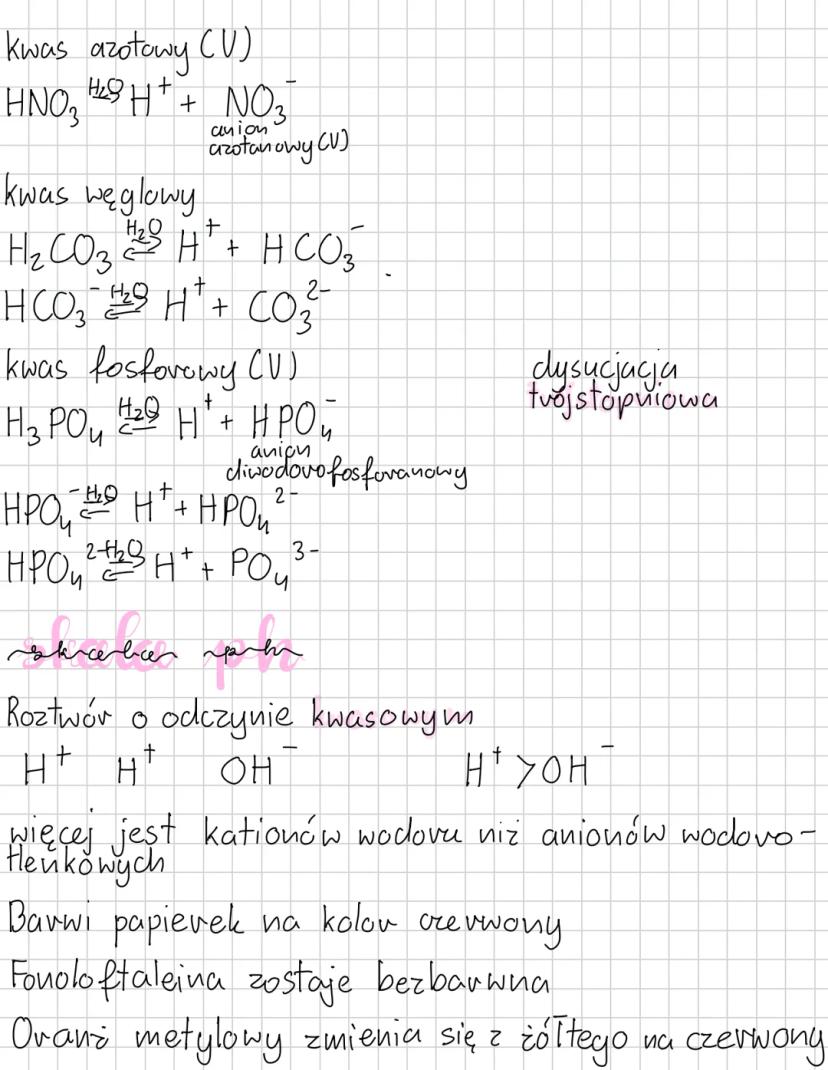 kwas azotowy (V)
HNO₃ H₂O→ H⁺ + NO₃⁻
anion
azotanowy (V)
kwas węglowy
H₂CO₃ H₂O⇄ H⁺ + HCO₃⁻
HCO₃⁻ H₂O⇄ H⁺ + CO₃²⁻
kwas fosforowy (V)
dysucjacja
trójstopniowa
H₃PO₄ H₂O⇄ H⁺ + HPO₄⁻
anion
diwodorofosforanowy
HPO₄⁻ H₂O⇄ H⁺ + HPO₄²⁻
HPO₄²⁻ H₂O⇄ H⁺ + PO₄³⁻
skala ph
Roztwór o odczynie kwasowym
H⁺ H⁺ OH⁻ H⁺ > OH⁻
więcej jest kationów wodoru niż anionów wodoro-
tlenkowych
Barwi papierek na kolor czerwony
Fonoloftaleina zostaje bezbarwna
Oranż metylowy zmienia się z żółtego na czerwony